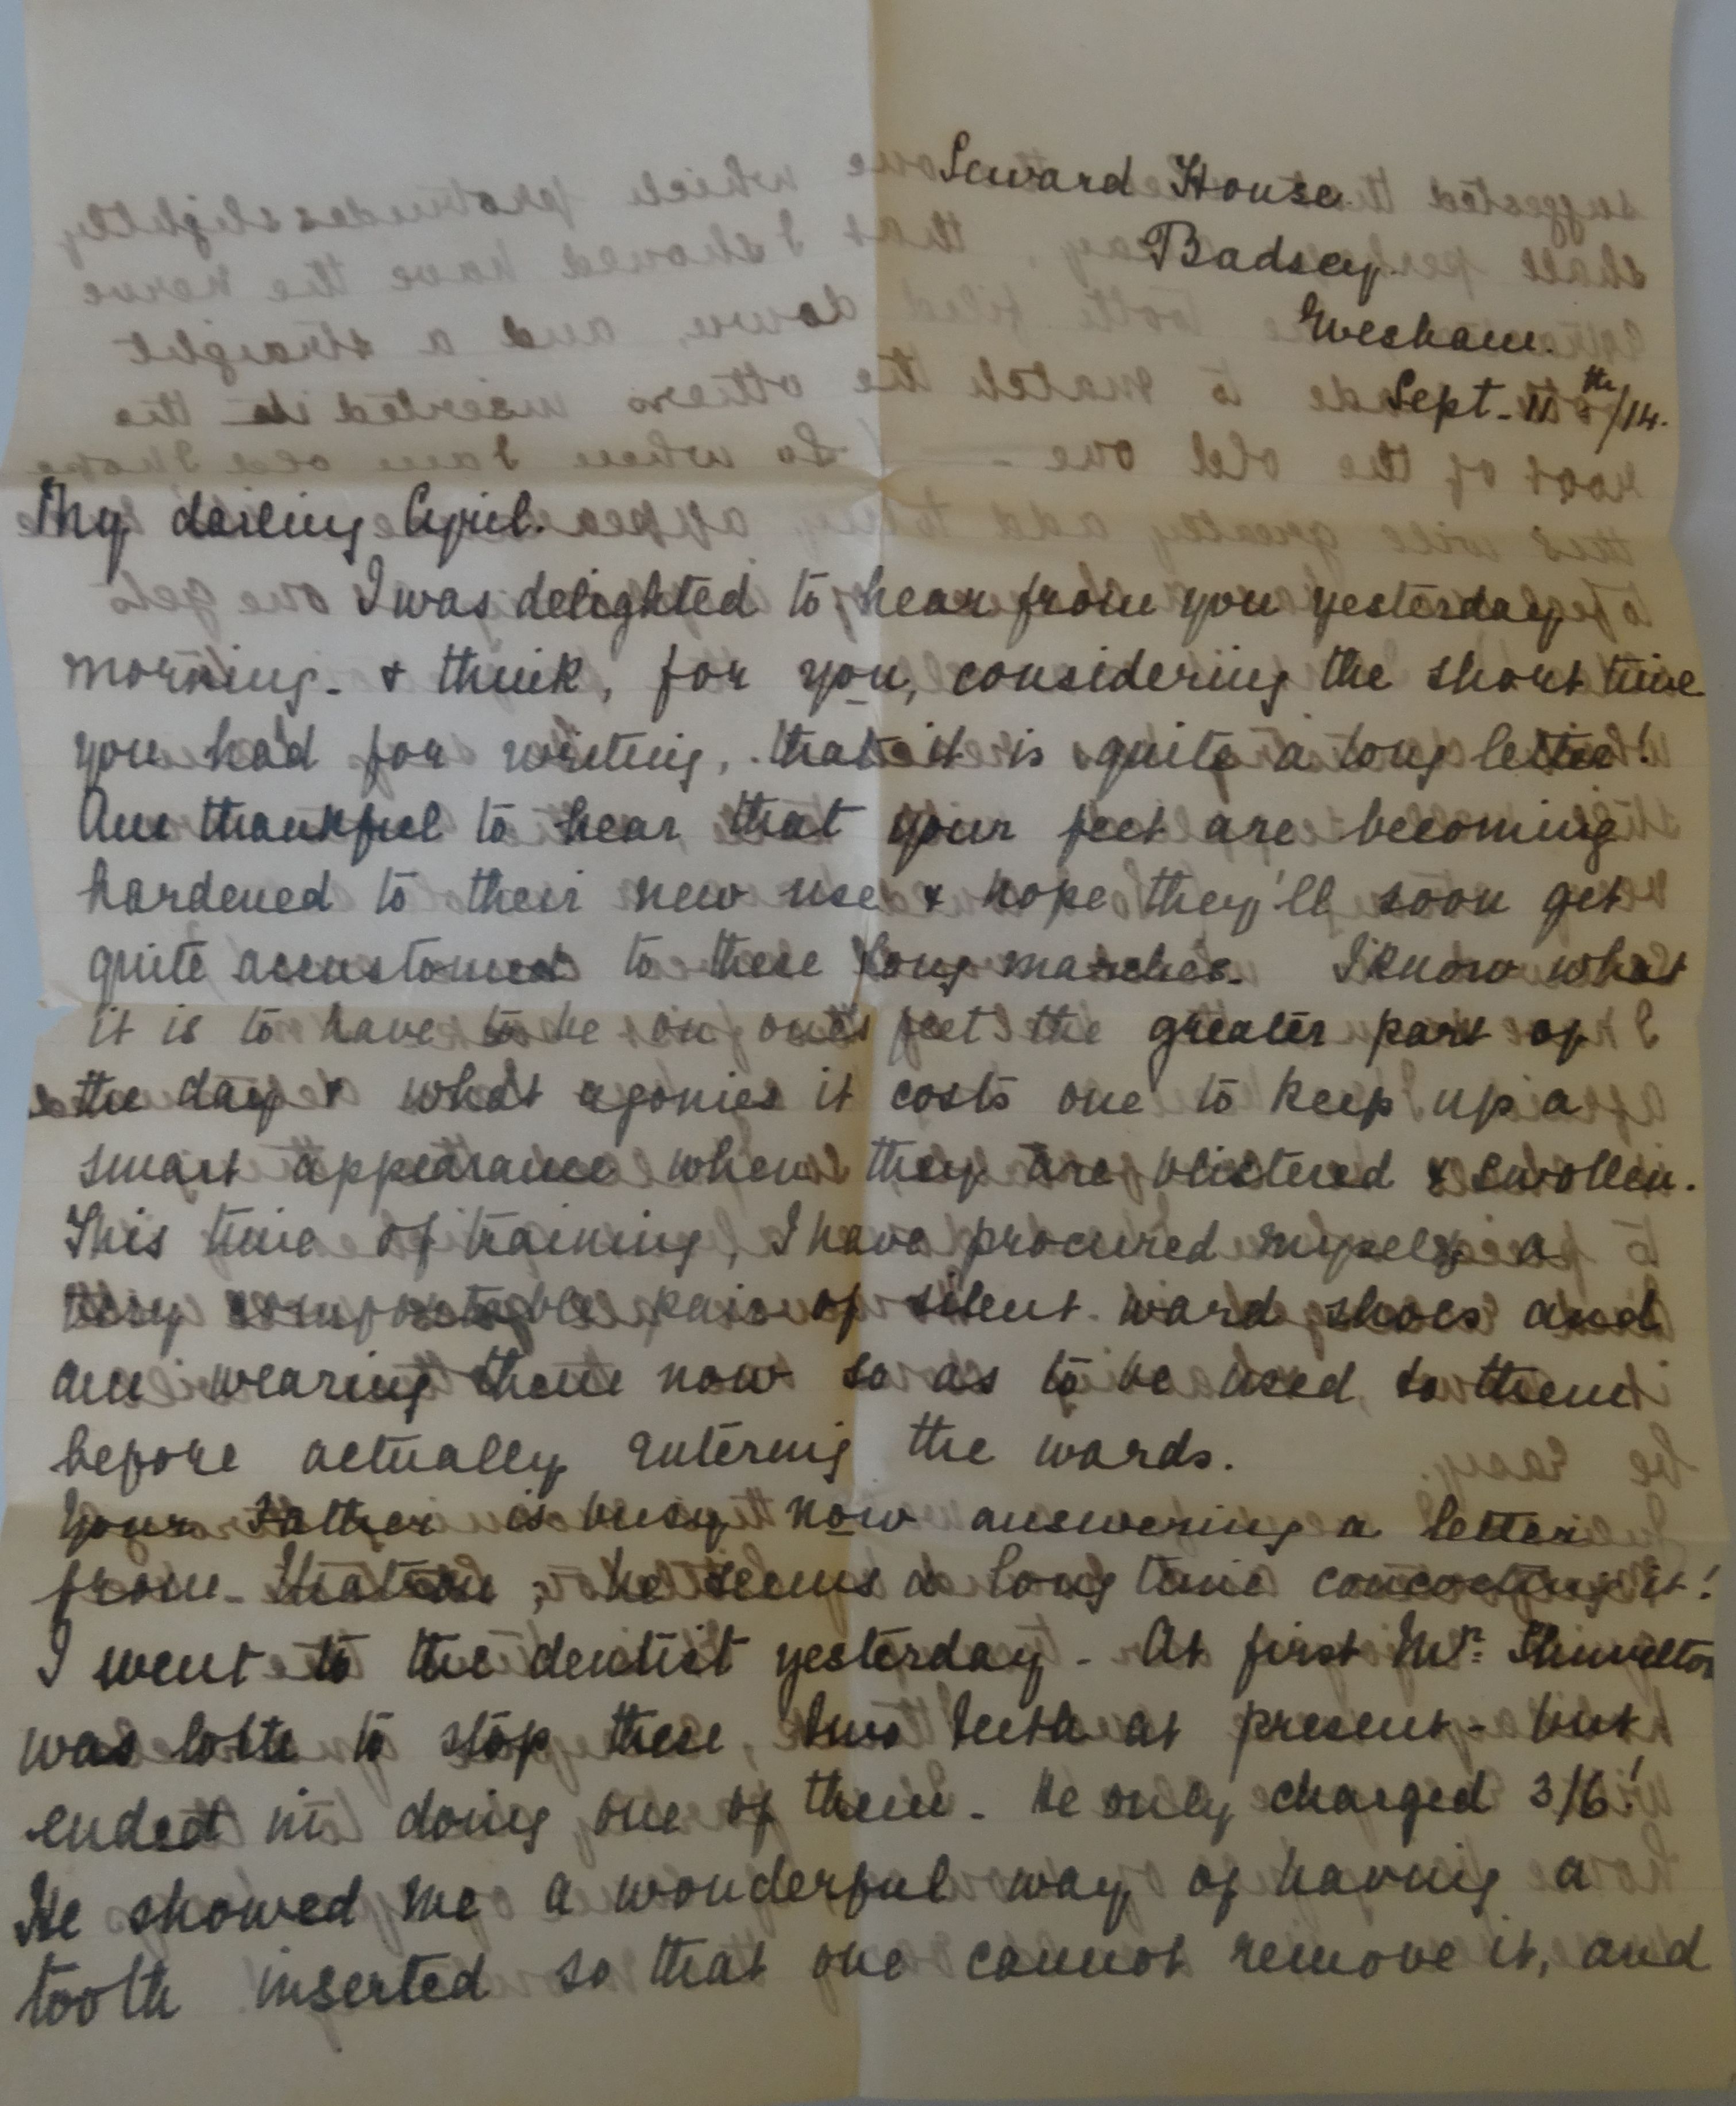 Seward House.
Badsey.
Evesham.
Sept. 11th/14.
My darling Cyril.
I was delighted to hear from you yesterday
morning - & think, for you, considering the short time
you had for writing, that it is quite a long letter!
Am thankful to hear, that your feet are becoming
hardened to their new use & hope they'll soon get
quite accustomed to these long marches. I know what
it is to have to be on one's feet the greater part of
the day & what agonies it costs one to keep up a
smart appearance when they are blistered & swollen.
This time of training, I have procured myself a
very comfortable pair of silent ward shoes and
am wearing them now so as to be used to them
before actually entering the wards.
Your Father is busy now answering a letter
from , he seems a long time concocting it!
I went to the dentist yesterday - At first Mr.
was loth to stop these two teeth at present - but
ended in doing one of them - He only charged 3/6!
He showed me a wonderful way of having a
tooth inserted so that one cannot remove it, and